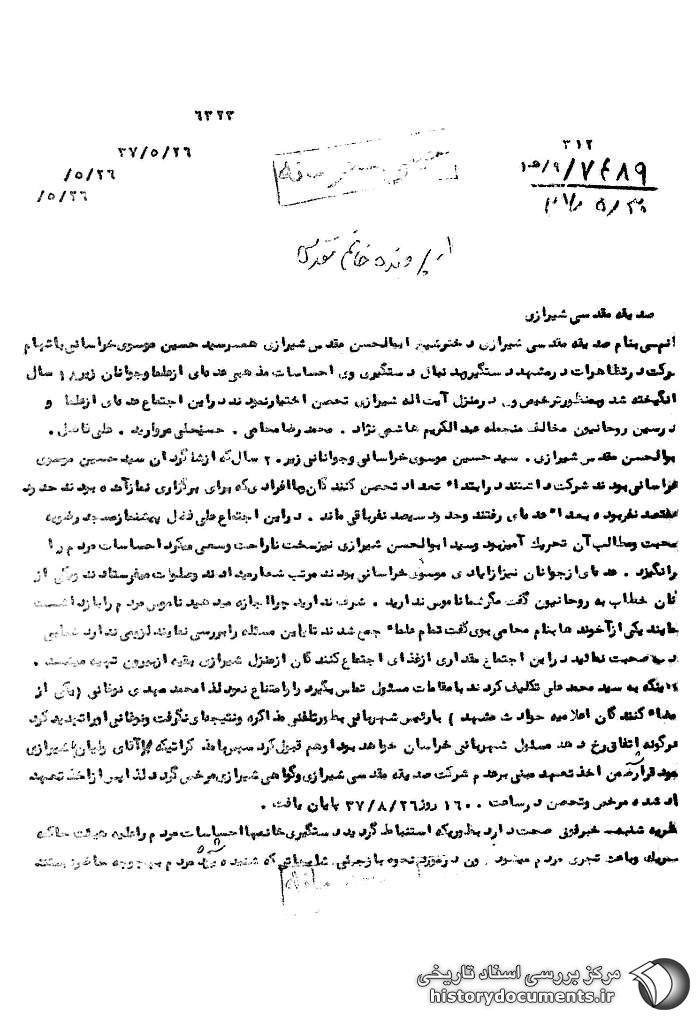 ۶۳۲۳
۳۱۲
۳۷/۵/۲۶
۷۴۸۹/
/۵/۲۶
/۵/۲۶
از پرونده خانم مقدسی
صدیقه مقدسی شیرازی
بنام صدیقه مقدسی شیرازی دختر شیخ ابوالحسن مقدس شیرازی همسر سید حسین موسوی خراسانی باتهام
شرکت در تظاهرات در مشهد دستگیر و بدنبال دستگیری وی احساسات مذهبی عده‌ای از علما و جوانان زیر ۲۰ سال
برانگیخته شد و بمنظور ترخیص وی در منزل آیت اله شیرازی تحصن اختیار نمودند در این اجتماع عده‌ای از علما و
مدرسین روحانیون مخالف منجمله عبدالکریم هاشمی نژاد . محمد رضا محامی . حسنعلی مروارید . علی
ابوالحسن مقدس شیرازی . سید حسین موسوی خراسانی و جوانانی زیر ۲۰ سال که از شاگردان سید حسین موسوی
خراسانی بودند شرکت داشتند در ابتداء تعداد تحصن کنندگان با افرادی که برای برگزاری نماز آمده بودند حدود
هفتصد نفر بوده بعداً عده‌ای رفتند و حدود سیصد نفر باقی ماند . در این اجتماع علی پیشنماز مسجد رضویه
صحبت و مطالب آن تحریک آمیز بود و سید ابوالحسن شیرازی نیز سخت ناراحت و سعی میکرد احساسات مردم را
برانگیزد . عده‌ای از جوانان نیز از ایادی موسوی خراسانی بودند مرتب شعار میدادند و صلوات میفرستادند و یکی از
آنان خطاب به روحانیون گفت مگر شما ناموس ندارید . شرف ندارید چرا اجازه میدهید ناموس مردم را بازداشت
نمایند یکی از آخوندها بنام محامی بوی گفت تمام علماء جمع شدند تا باین مسئله را بررسی نمایند لزومی ندارد شما
صحبت نمائید در این اجتماع مقداری از غذای اجتماع کنندگان از منزل شیرازی بقیه از بیرون تهیه میشد .
اینکه به سید محمد علی تکلیف کردند با مقامات مسئول تماس بگیرد امتناع نمود لذا محمد مهدی نوغانی (یکی از
امضاء کنندگان اعلامیه حوادث مشهد) با رئیس شهربانی بطور تلفنی مذاکره و نتیجه‌ای نگرفت و نوغانی او را تهدید کرد
هرگونه اتفاقی رخ دهد مسئول شهربانی خراسان خواهد بود او هم قبول کرد سپس با مذاکراتیکه با آقای شیرازی
بود قرار شد ضمن اخذ تعهد مبنی بر عدم شرکت صدیقه مقدسی شیرازی و گواهی شیرازی مرخص گردد لذا پس از اخذ تعهد
یاد شده مرخص و تحصن در ساعت ۱۶۰۰ روز ۳۷/۸/۲۶ پایان یافت .
نظریه شنبه خبر فوق صحت دارد بطوریکه استنباط گردید دستگیری خانمها احساسات مردم را علیه هیئت حاکمه
تحریک و باعث تجری مردم میشود . در مورد نحوه بازجوئی شایعاتی که شنیده شده مردم بهیچوجه حاضر نیستند
مرکز بررسی اسناد تاریخی
historydocuments.ir